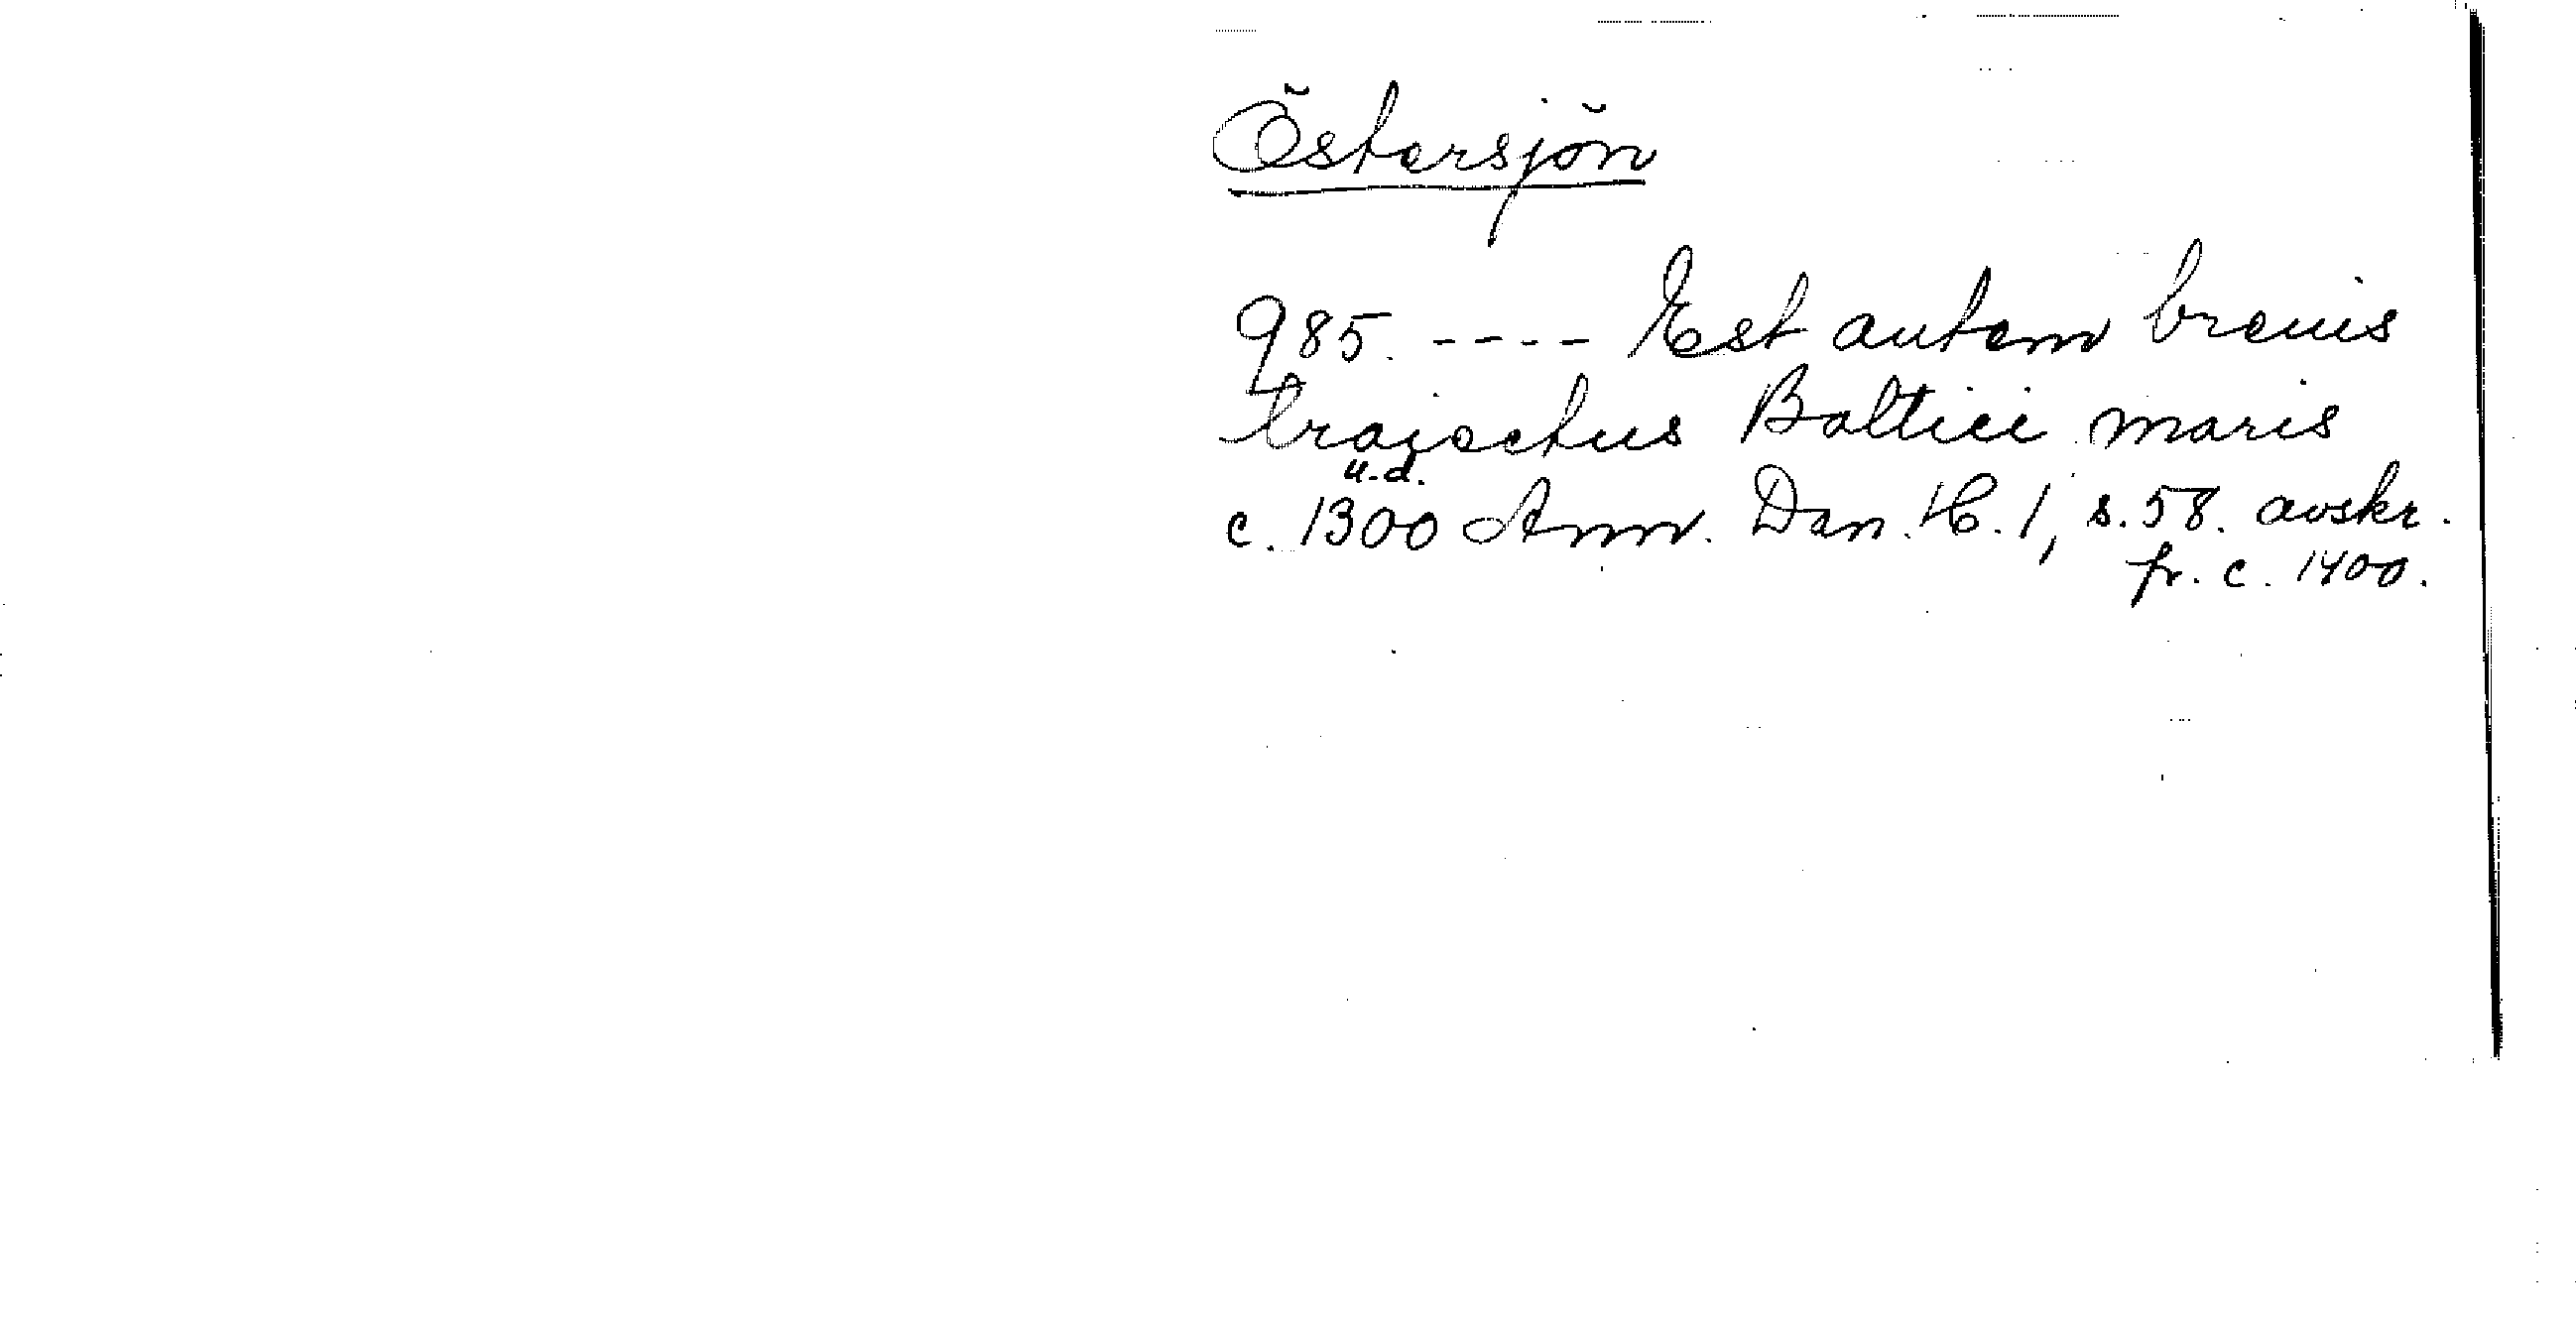 Östersjön
985. ---- Est autem breuis
trajectus Baltici maris
u.d.
c. 1300 Ann. Dan. H. 1, s. 58. avskr.
fr. c. 1400.